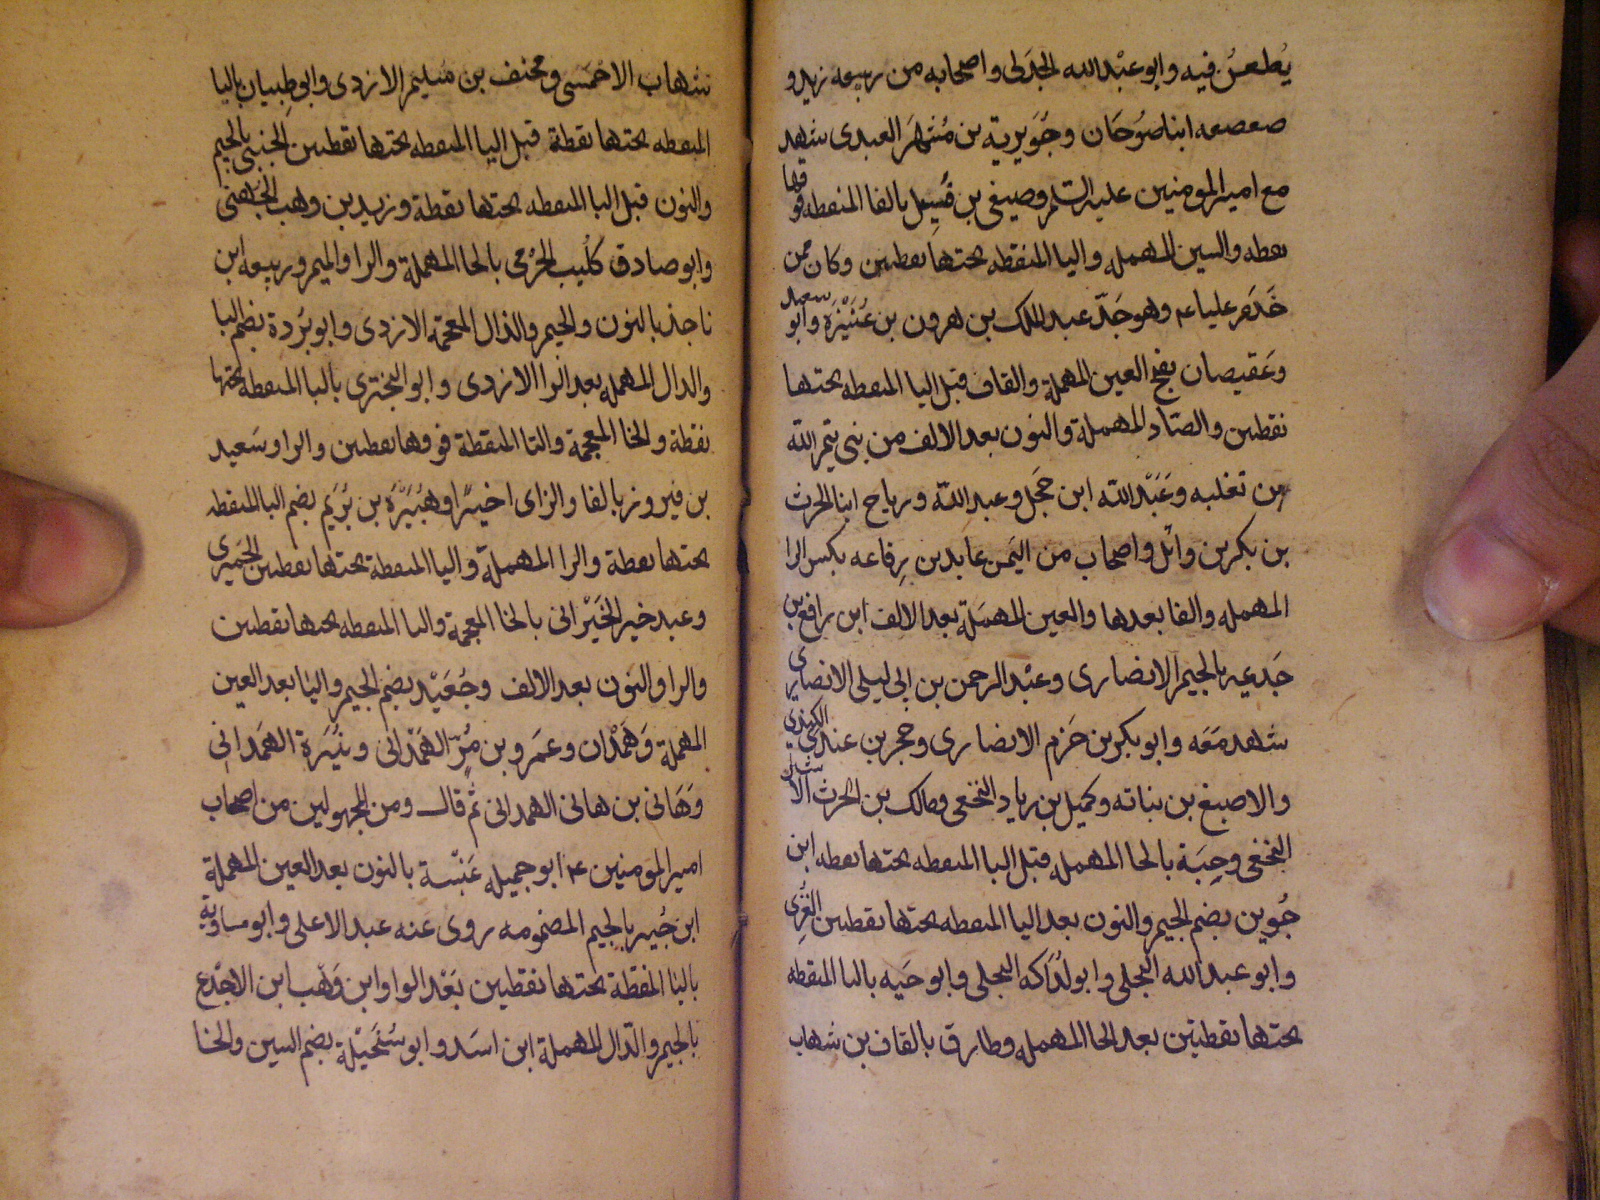 يُطعنُ فيه وابو عبْد الله الجدَلى واصحابه من ربيعه زيد و
صعصعه ابنا صُوحَان وجُوَيرية بن مُسْهَر العبدى شهد
مع امير المومنين عليه السلم وصيفى بن فَسِيل بالفا المنقطه فوقها
نقطه والسين المهمله واليا المنقطه تحتها نقطتين وكان ممن
خَدَم عليا ع وهو جَدّ عبد الملك بن هرون بن عَنتَرَة وابو سعيد
وعَقيصان بفتح العين المهملة والقاف قبل اليا المنقطه تحتها
نقطتين والصّاد المهملة والنون بعد الالف من بنى تيم الله
من تغلبه وعَبْد الله ابن حَجَل وعبد اللّه ورباح ابنا الحرث
بن بكر بن وائل واصحاب من اليَمن عابد بن رِفاعه بكسر الرا
المهمله والفا بعدها والعين المهمَلة بعد الالف ابن رافع بن
جَدعيه بالجيم الانصارى وعبْد الرحمن بن ابى ليلى الانصارى
شهد مَعَه وابو بكر بن حَزم الانصارى وحجر بن عندى الكندى
والاصبغ بن بناته وكميل بن زياد النخعى ومالك بن الحرث الاشتر
النخعى وحِبَة بالحا المهمله قبل البا المنقطه تحتها نقطه ابن
جُوين بضم الجيم والنون بعد اليا المنقطه تحتها نقطتين العُرنى
وابو عبد الله البجلى وابو لُدَاكه البجلى وابو حَيه باليا المنقطه
تحتها نقطتين بعد الحا المهمله وطارق بالقاف بن شهاب
شهاب الاحْمَسى ومخنف بن سَليم الازدى وابو ظِبيان باليا
المنقطه تحتها نقطة قبل اليا المنقطه تحتها نقطتين الجَنبى بالجيم
والنون قبل البا المنقطه تحتها نقطة وزيد بن وهب الجُهنى
وابو صادق كلُيب الجَرْمى بالحا المهملة والرا والميم وربيعه ابن
ناجذ بالنون والجيم والذال المعجمة الازدى وابو بُردة بضم البا
والدال المهمله بعد الرا الازدى وابو البخترى بالبا المنقطه تحتها
نقطة والخا المعجمة والتا المنقطة فوقها نقطتين والرا وسَعيد
بن فيروز بالفا والزاى اخيرًا وهُبَيْرَه بن بُرَيم بضم البا المنقطه
تحتها نقطة والرا المهملة واليا المنقطة تحتها نقطتين الحِمَيرى
وعبد خير الخَيْرانى بالخا المعجمة واليا المنقطه تحتها نقطتين
والرا والنون بعد الالف وجُعَيْد بضم الجيم واليا بعد العين
المهملة وَهَمْدان وعمَرو بن مُرّ الهَمَدانى وبُبَرة الهَمَدانى
وَهَانى بن هانى الهمدانى ثم قال ومن المجهولين من اصحاب
امير المومنين ع ابو جميله عَنبْسة بالنون بعد العين المهملة
ابن جُبير بالجيم المضمومه روى عنه عبد الاعلى وابو مساوية
باليا المنقطة تحتها نقطتين بَعْد الواو ابن وَهْب ابن الاجْدع
بالجيم والدّال المهملة ابن اسَد وابو سُخَيْلة بضم السين والخا